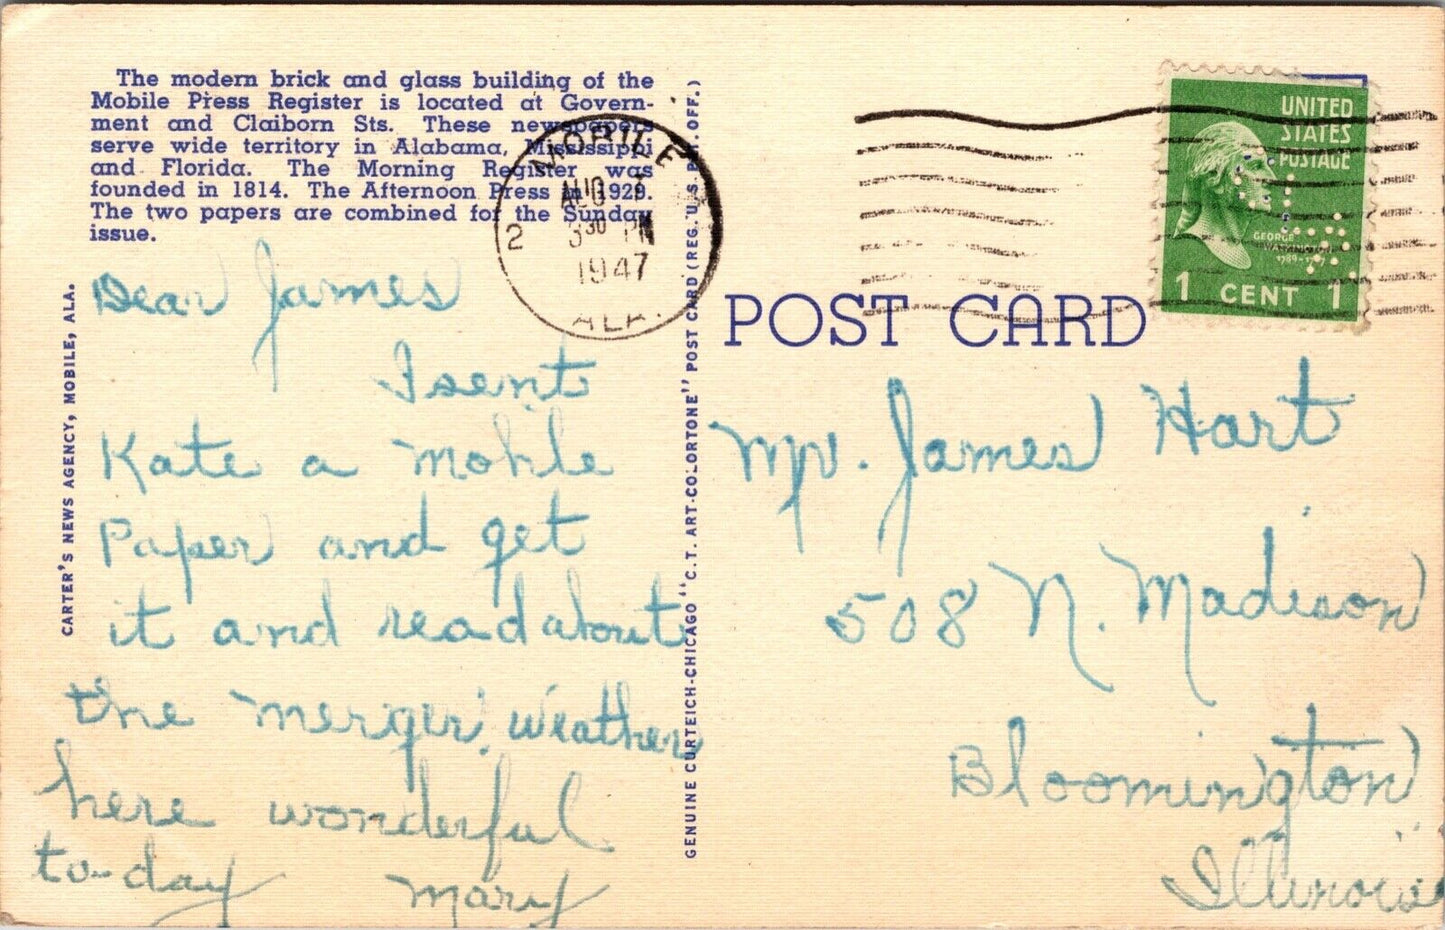 The modern brick and glass building of the
Mobile Press Register is located at Govern-
ment and Claiborn Sts. These newspapers
serve wide territory in Alabama, Mississippi
and Florida. The Morning Register was
founded in 1814. The Afternoon Press in 1929.
The two papers are combined for the Sunday
issue.
CARTER'S NEWS AGENCY, MOBILE, ALA.
Dear James
I sent
Kate a Mobile
Paper and get
it and read about
the merger. Weather
here wonderful
to-day Mary
GENUINE CURTEICH-CHICAGO "C.T. ART-COLORTONE" POST CARD (REG. U.S. PAT. OFF.)
MOBILE
2
AUG 7
3 30 PM
1947
ALA.
UNITED
STATES
POSTAGE
GEORGE
WASHINGTON
1789-1797
1 CENT 1
POST CARD
Mr. James Hart
508 N. Madison
Bloomington
Illinois